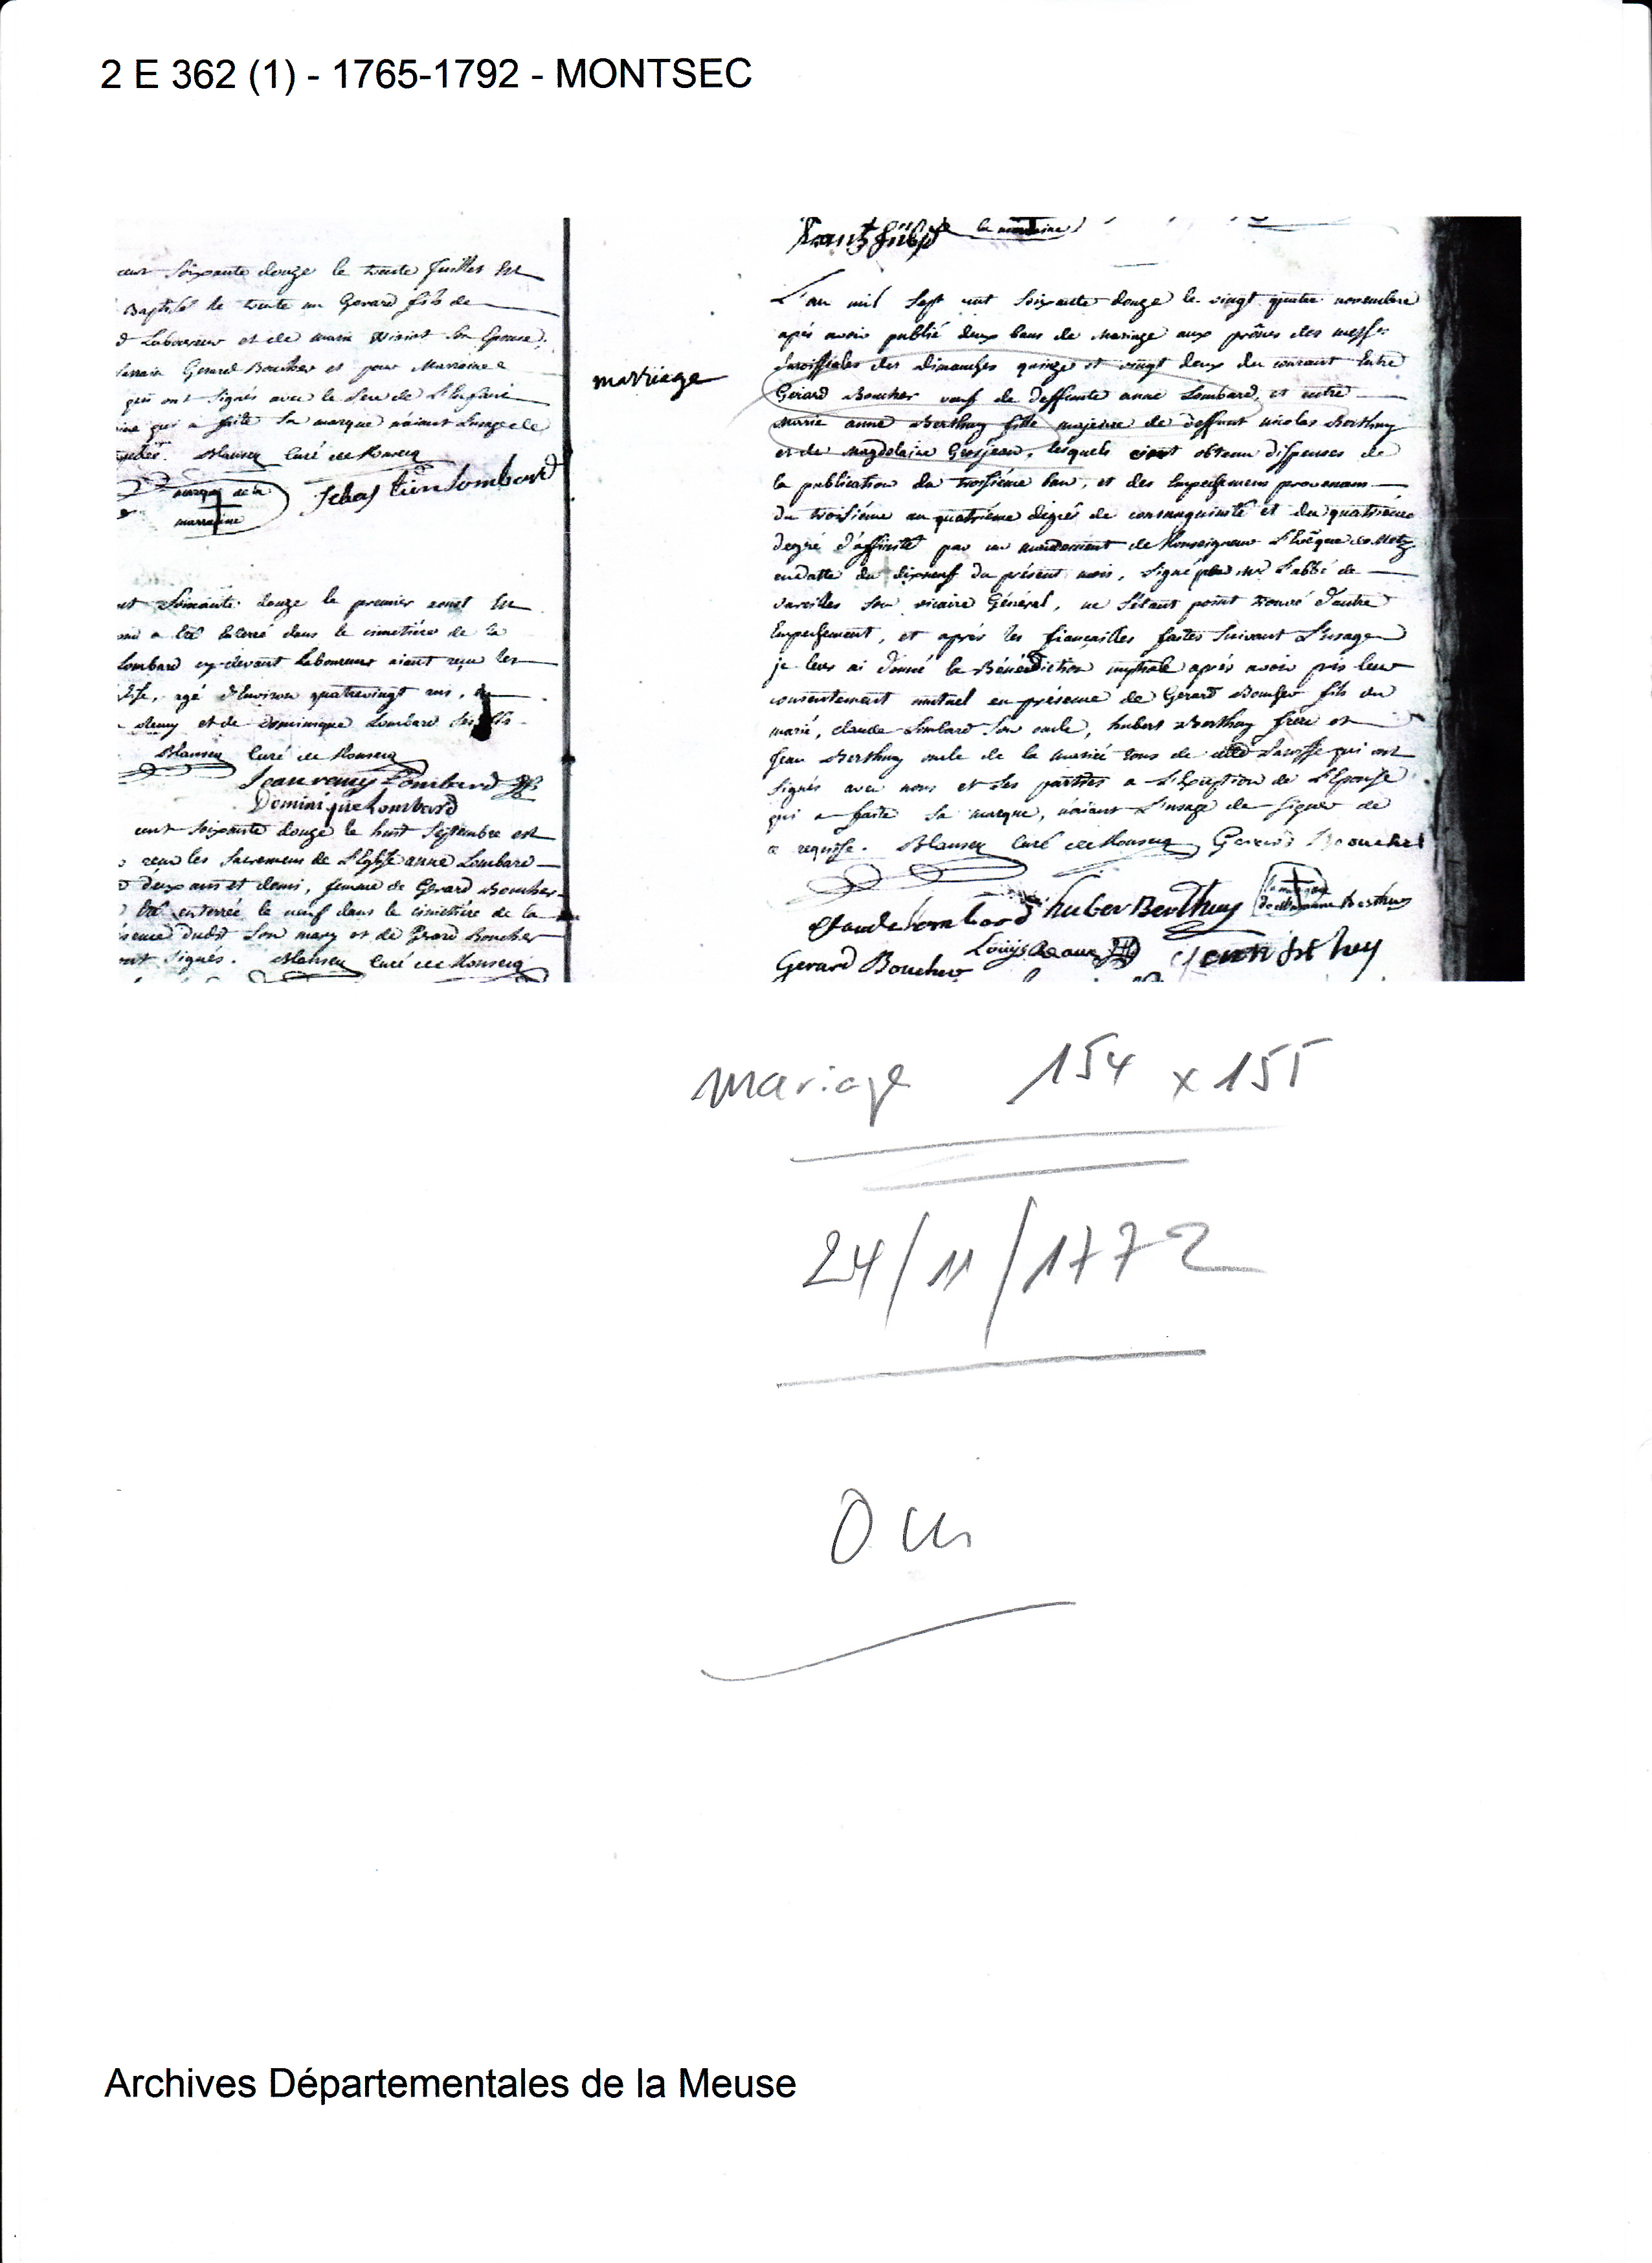 2 E 362 (1) - 1765-1792 - MONTSEC
cent Soixante douze le trente Juillet est
Baptisé le trente un Gerard fils de
Laboureur et de marie son Epouse,
parrain Gerard Boucher et pour Marraine
qui ont signés avec le Pere de l'Enfant
qui a faite sa marque n'aiant l'usage de
Curé de Monsecq
marque de la
marraine
Sebastien Lombard
cent Soixante douze le premier aoust est
a été Enterré dans le cimetière de la
Lombard cy-devant Laboureur aiant reçu les
agé d'Environ quatrevingt ans,
Remy et de Dominique Lombard ses fils
Curé de Monsecq
Jean remy Lombard
Dominique Lombard
cent soixante douze le huit Septembre est
reçu les Sacremens de l'Eglise anne Lombard
deux ans et demi, femme de Gerard Boucher
été enterrée le neuf dans le cimetière de la
dudit son mary et de Gerard Boucher
ont signés. Curé de Monsecq
mariage
la marraine
L'an mil sept cent soixante douze le vingt quatre novembre
après avoir publié deux bans de Mariage aux prônes des messes
Paroissiales des dimanches quinze et vingt deux du courant Entre
Gerard Boucher veuf de deffunte anne Lombard, et entre
Marie anne Berthuy fille majeure de deffunt nicolas Berthuy
et de Magdelaine Grosjean, lesquels obtenu dispenses de
la publication du troisième ban, et des Empechemens provenans
du troisième au quatrième degrés de consanguinité et du quatrième
degré d'affinité par un mandement de Monseigneur L'Evêque de Metz
endatte du dixneuf du présent mois, signé L'abbé de
son vicaire Général, ne s'étant point trouvé d'autre
Empechement, et après les fiançailles faites suivant L'usage
je leur ai donné la Bénédiction nuptiale après avoir pris leur
consentement mutuel en présence de Gerard Boucher fils du
marié, claude Lombard son oncle, hubert Berthuy frere et
Jean Berthuy oncle de la mariée tous de Paroisse qui ont
signés avec nous et les parties a L'Exception de L'Epouse
qui a faite sa marque, n'aiant L'usage de signer de
ce requise. Curé de Monsecq Gerard Boucher
Claude Lombard huber Berthuy la marque
de Marianne Berthuy
Gerard Boucher Louis
mariage 154 x 155
24/11/1772
Oui
Archives Départementales de la Meuse